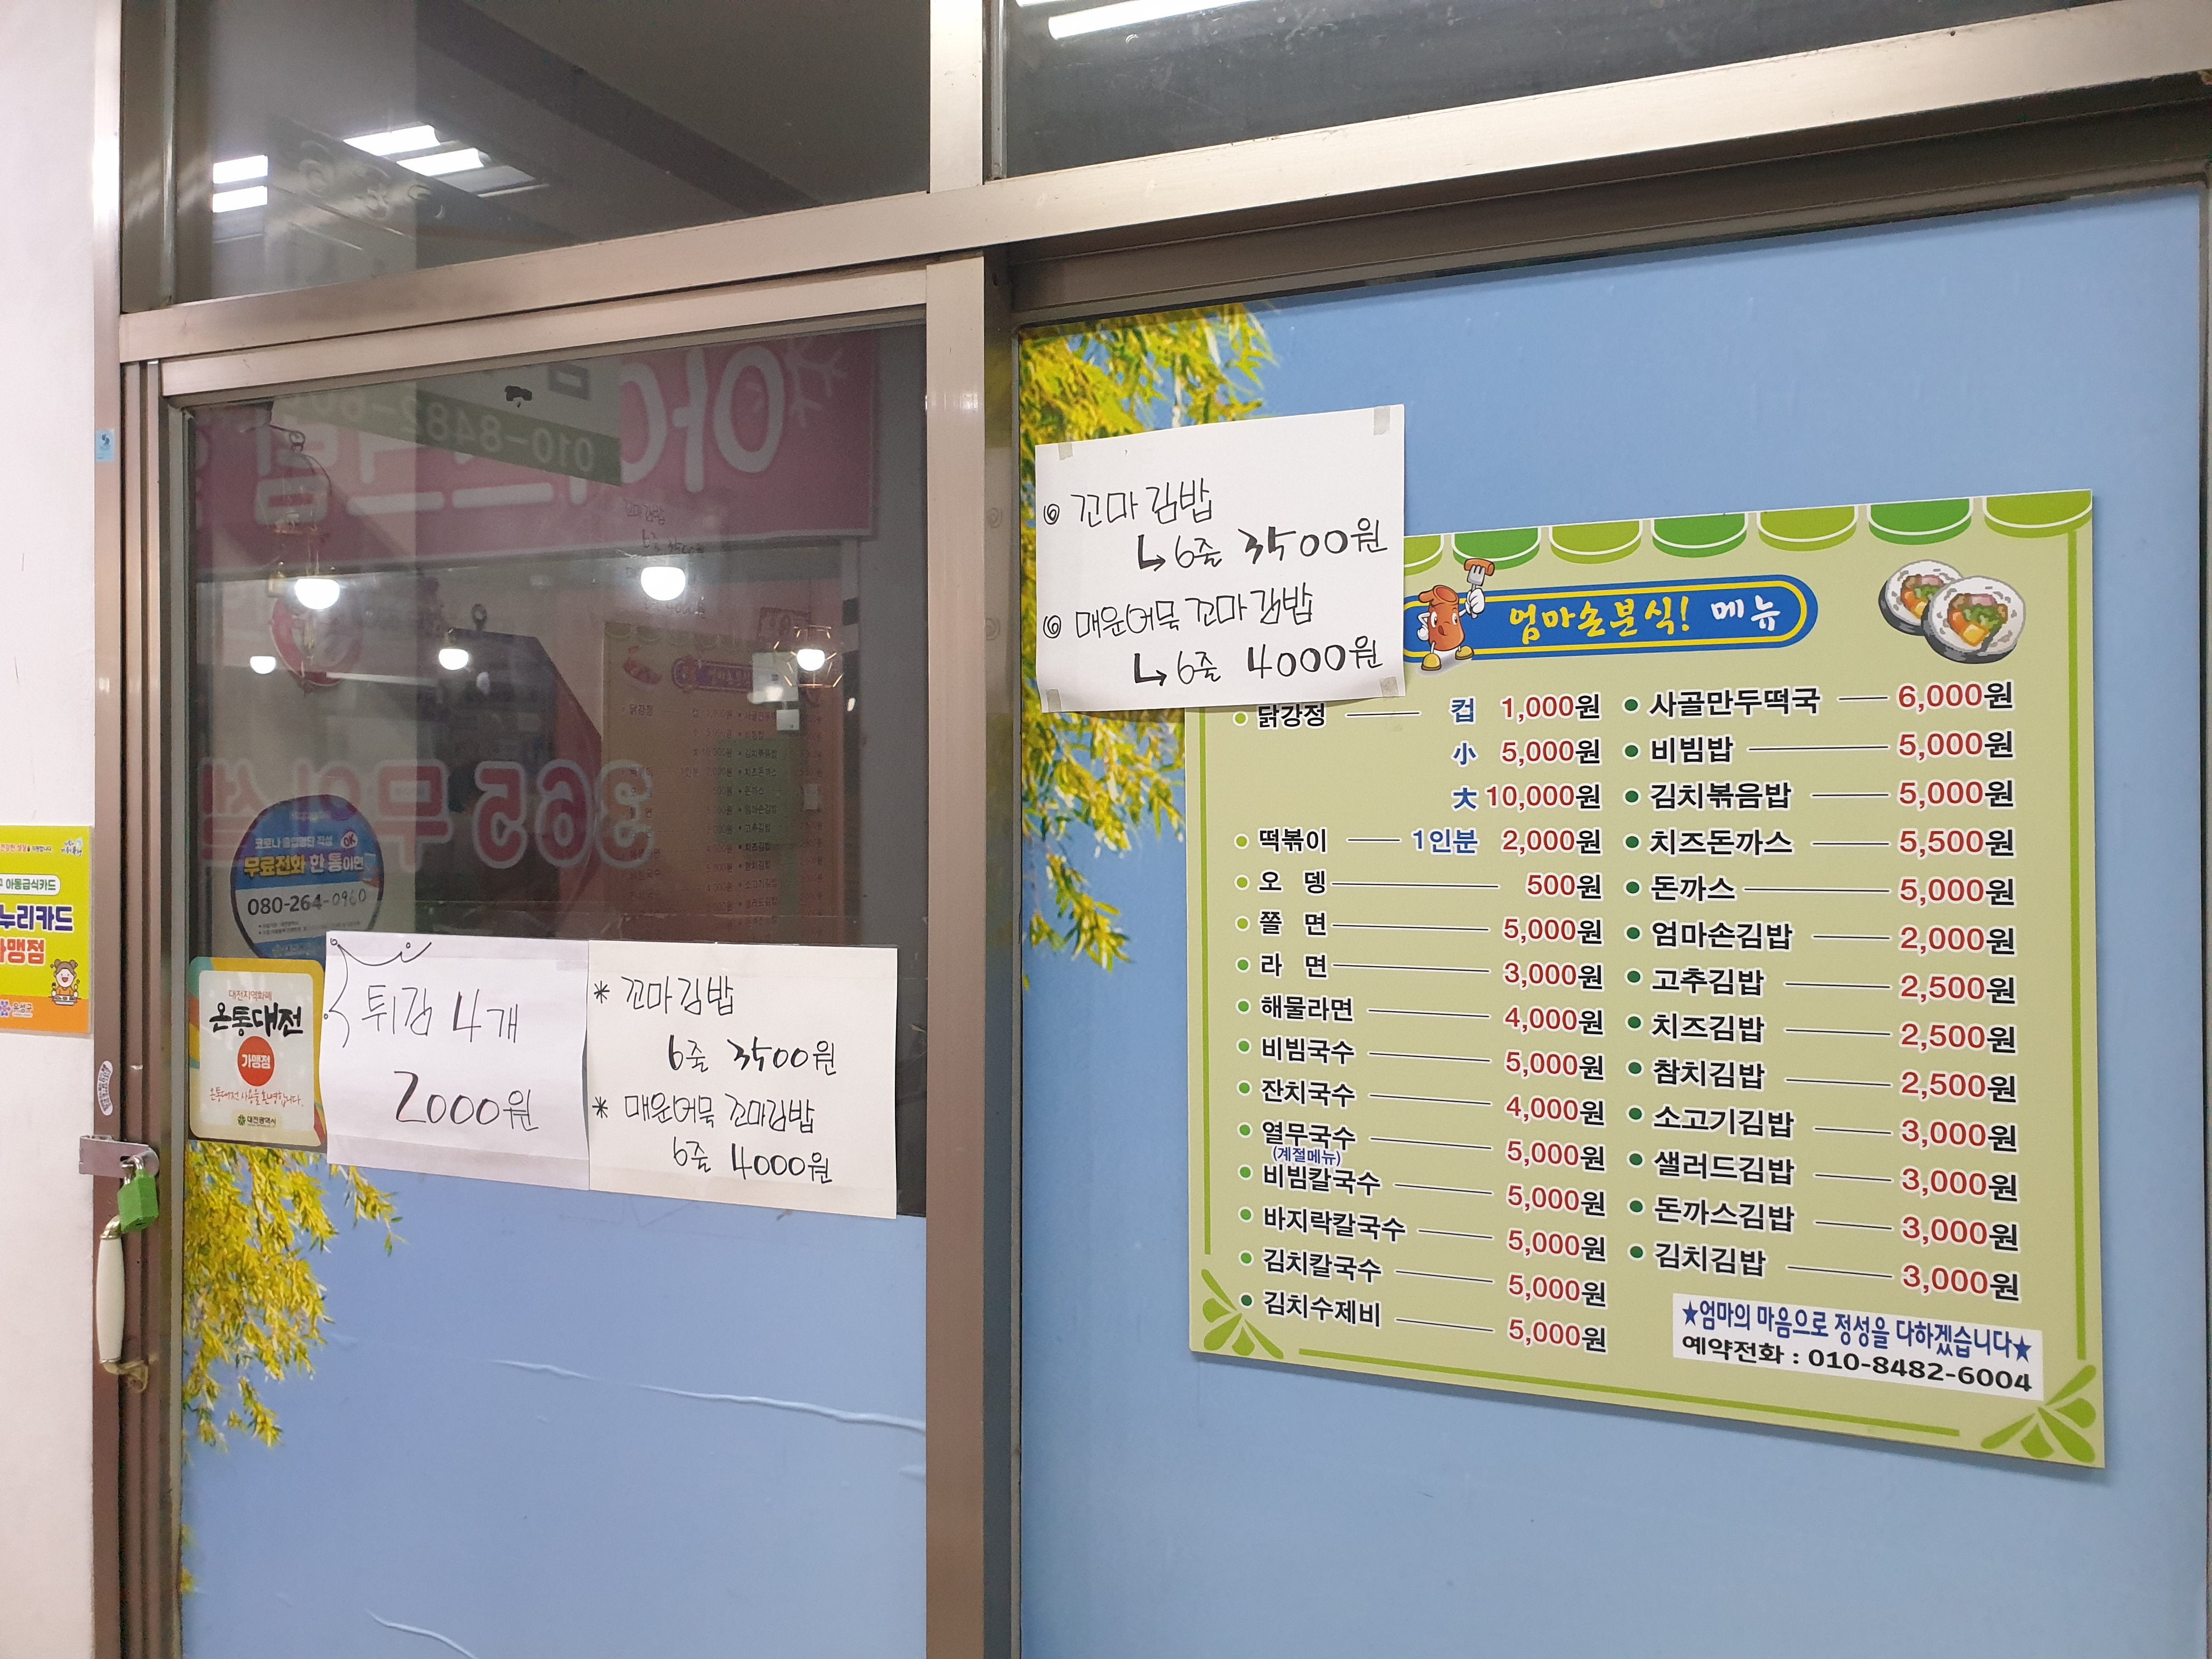 꼬마김밥
↳ 6줄 3500원
매운어묵 꼬마김밥
↳ 6줄 4000원
엄마손분식! 메뉴
닭강정 컵 1,000원
小 5,000원
大 10,000원
떡볶이 1인분 2,000원
오 뎅 500원
쫄 면 5,000원
라 면 3,000원
해물라면 4,000원
비빔국수 5,000원
잔치국수 4,000원
열무국수 5,000원
(계절메뉴)
비빔칼국수 5,000원
바지락칼국수 5,000원
김치칼국수 5,000원
김치수제비 5,000원
사골만두떡국 6,000원
비빔밥 5,000원
김치볶음밥 5,000원
치즈돈까스 5,500원
돈까스 5,000원
엄마손김밥 2,000원
고추김밥 2,500원
치즈김밥 2,500원
참치김밥 2,500원
소고기김밥 3,000원
샐러드김밥 3,000원
돈까스김밥 3,000원
김치김밥 3,000원
★엄마의 마음으로 정성을 다하겠습니다★
예약전화 : 010-8482-6004
튀김 4개
2000원
* 꼬마김밥
6줄 3500원
* 매운어묵 꼬마김밥
6줄 4000원
코로나 출입명단 작성 OK
무료전화 한 통이면
080-264-0960
대전지역화폐
온통대전
가맹점
온통대전 사용을 환영합니다.
대전광역시
아동급식카드
누리카드
가맹점
010-8482-60
365 무인